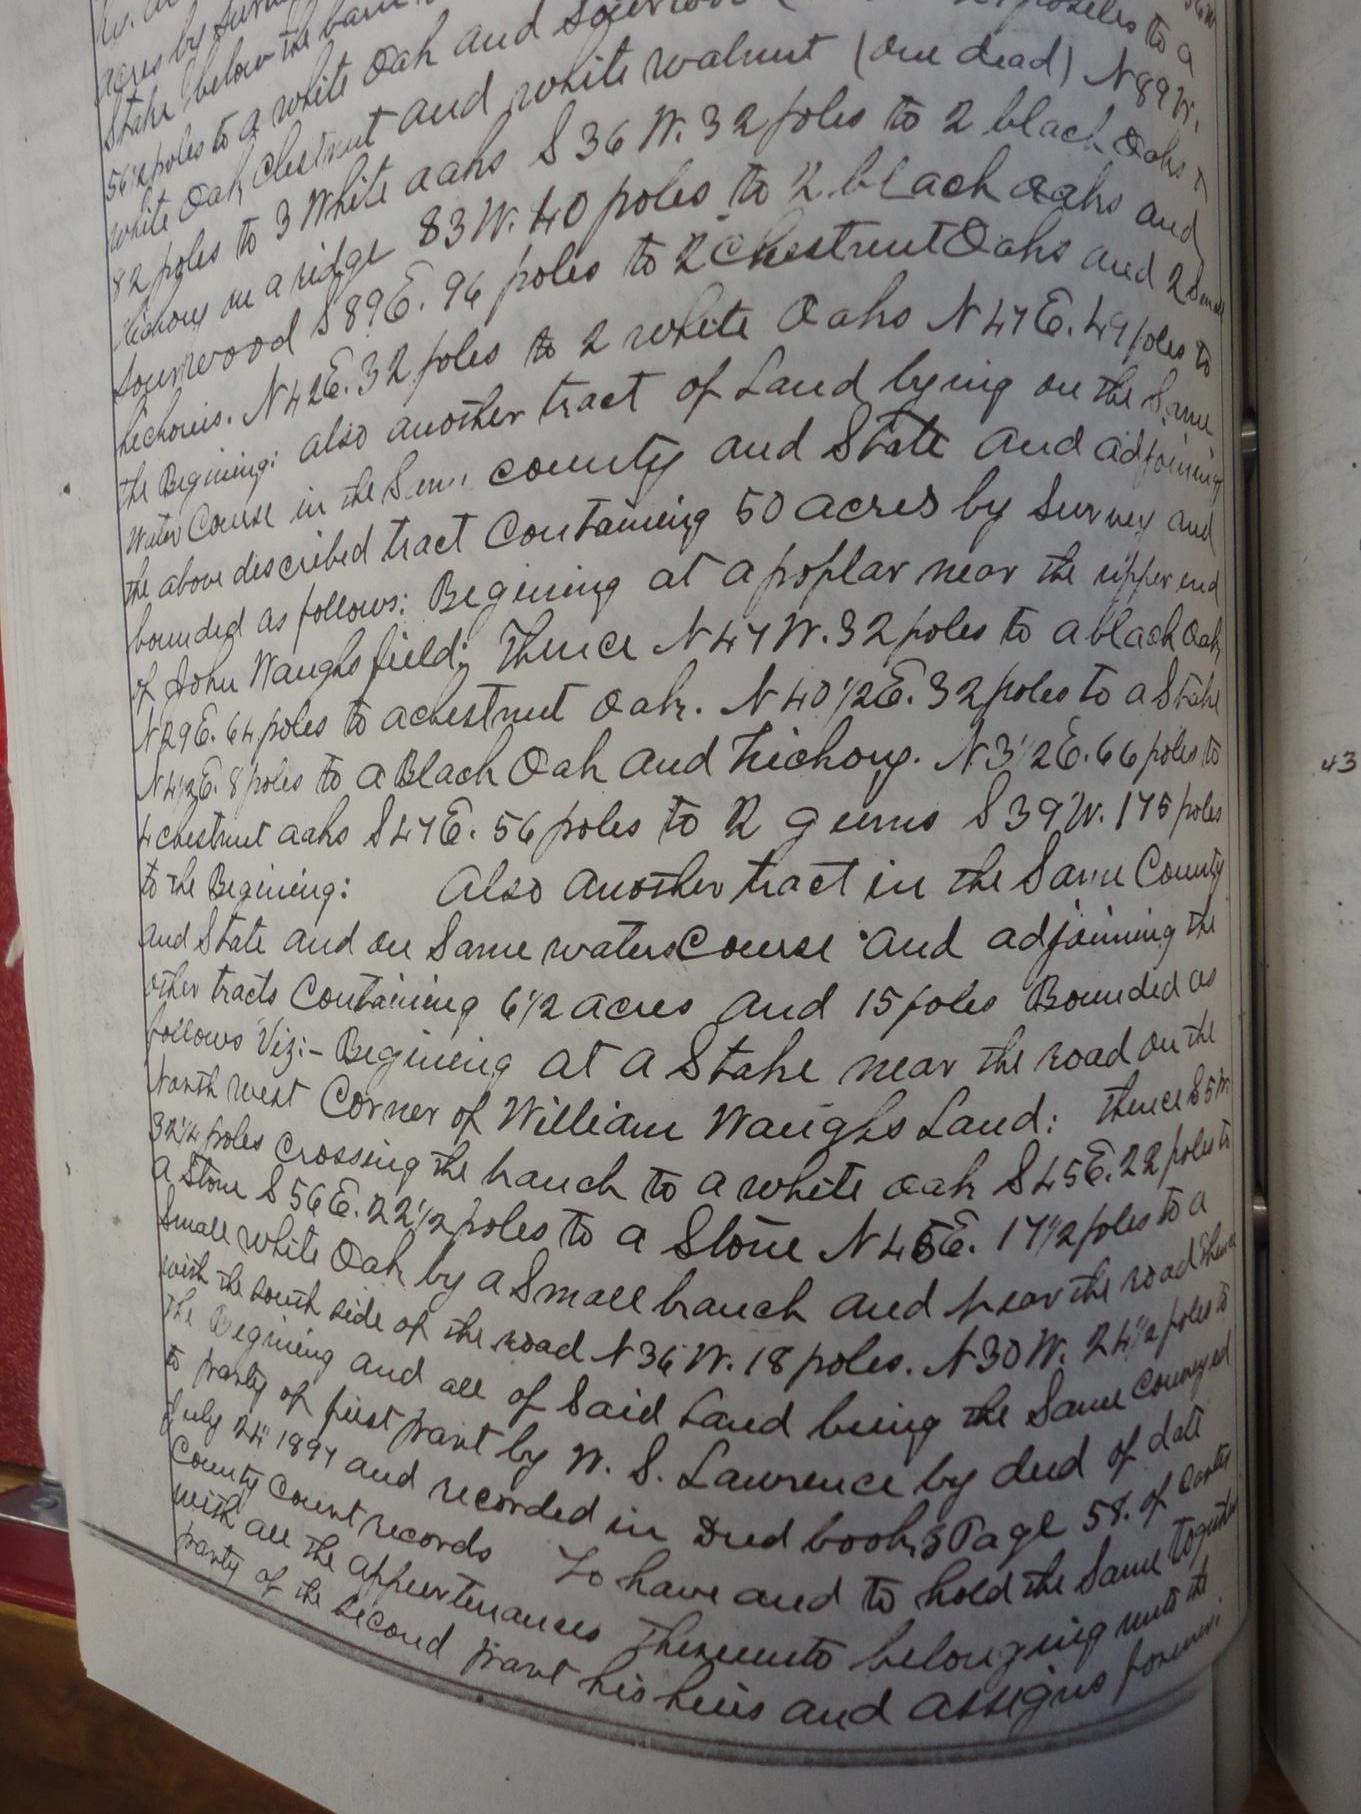 acres by
Stake below the barn poles to a
56 1/2 poles to a white Oak and Sourwood
white Oak Chestnut and white walnut (one dead) N 89 W.
82 poles to 3 White oaks S 36 W. 32 poles to 2 black Oaks
hickory on a ridge 83 W. 40 poles to 2 black oaks and
Sourwood S 89 E. 96 poles to 2 Chestnut Oaks and 2 Small
hickories. N 42 E. 32 poles to 2 white Oaks N 47 E. 49 poles to
the Begining: also another tract of Land lying on the Same
Water Course in the Same county and State and adjoining
the above described tract Containing 50 acres by Survey and
bounded as follows: Begining at a poplar near the upper end
of John Waughs field; Thence N 47 W. 32 poles to a black Oak
N 29 E. 64 poles to a chestnut Oak. N 40 1/2 E. 32 poles to a Stake
N 42 E. 8 poles to a Black Oak and hickory. N 3 1/2 E. 66 poles to
4 chestnut oaks S 47 E. 56 poles to 2 gums S 39 W. 175 poles
to the Begining: Also another tract in the Same County
and State and on Same waters Course and adjoining the
other tracts Containing 6 1/2 acres and 15 poles Bounded as
follows Viz:- Begining at a Stake near the road on the
North west Corner of William Waughs Land: thence S 5 W.
32 1/4 poles crossing the branch to a white oak S 45 E. 22 poles to
a Stone S 56 E. 22 1/2 poles to a Stone N 45 E. 17 1/2 poles to a
Small white Oak by a Small branch and near the road thence
with the south side of the road N 36 W. 18 poles. N 30 W. 24 1/2 poles to
the Begining and all of Said Land being the Same Conveyed
to party of first part by W. S. Lawrence by deed of date
July 24" 1897 and recorded in Deed book Page 58. of Carter
County Court records To have and to hold the Same together
with all the appurtenances Thereunto belonging unto the
party of the second part his heirs and assigns forever.
43